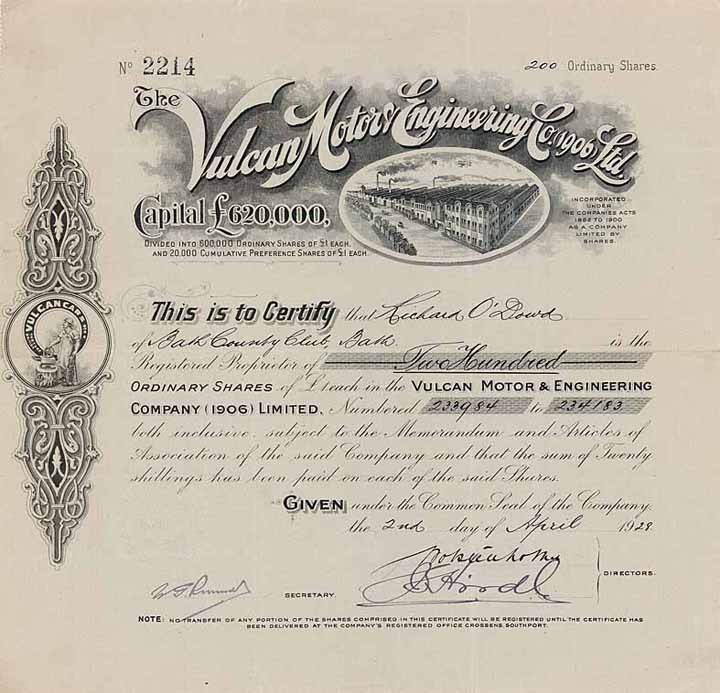 No 2214
200 Ordinary Shares.
The
Vulcan Motor & Engineering Co. (1906) Ltd.
Capital £620,000,
DIVIDED INTO 600,000 ORDINARY SHARES OF £1 EACH.
AND 20,000 CUMULATIVE PREFERENCE SHARES OF £1 EACH.
INCORPORATED
UNDER
THE COMPANIES ACTS
1862 TO 1900
AS A COMPANY
LIMITED BY
SHARES.
VULCAN CARS
This is to Certify that Richard O'Dowd
of Bath County Club, Bath. is the
Registered Proprietor of Two Hundred
ORDINARY SHARES of £1 each in the VULCAN MOTOR & ENGINEERING
COMPANY (1906) LIMITED, Numbered 233984 to 234183
both inclusive, subject to the Memorandum and Articles of
Association of the said Company and that the sum of Twenty
shillings has been paid on each of the said Shares.
GIVEN under the Common Seal of the Company.
the 2nd day of April 1928.
DIRECTORS.
SECRETARY.
NOTE: NO TRANSFER OF ANY PORTION OF THE SHARES COMPRISED IN THIS CERTIFICATE WILL BE REGISTERED UNTIL THE CERTIFICATE HAS
BEEN DELIVERED AT THE COMPANY'S REGISTERED OFFICE CROSSENS, SOUTHPORT.